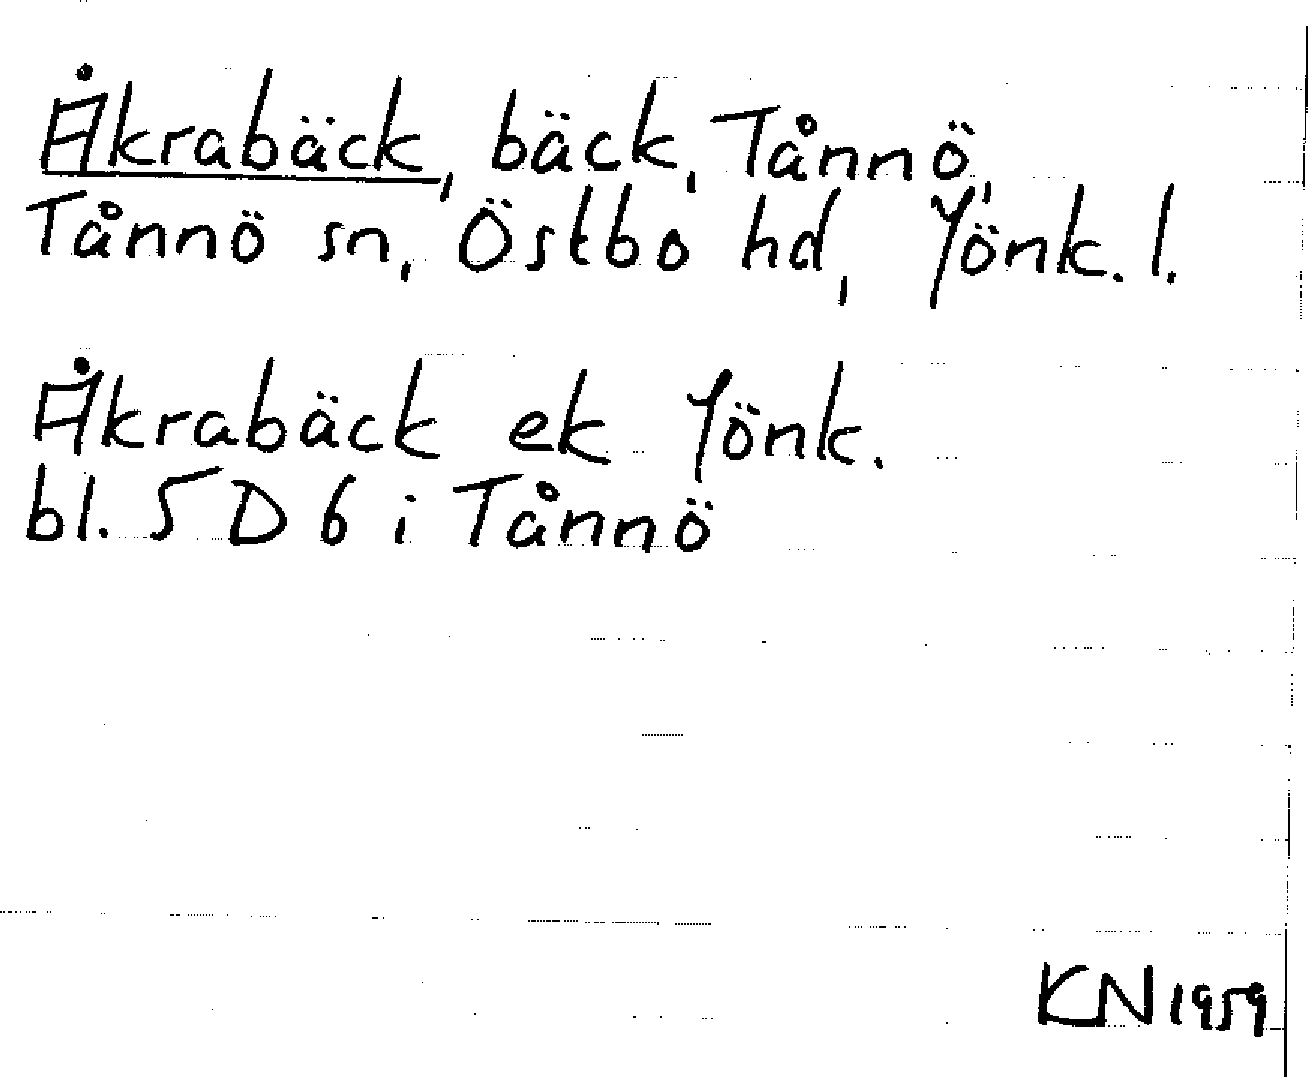 Åkrabäck, bäck, Tånnö,
Tånnö sn, Östbo hd, Jönk. l.
Åkrabäck ek Jönk.
bl. 5 D 6 i Tånnö
KN 1959